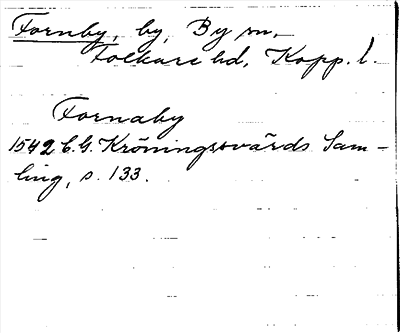 Fornby, by, By sn,
Folkare hd, Kopp. l.
Fornaby
1542 C.G. Kröningssvärds Sam-
ling, s. 133.